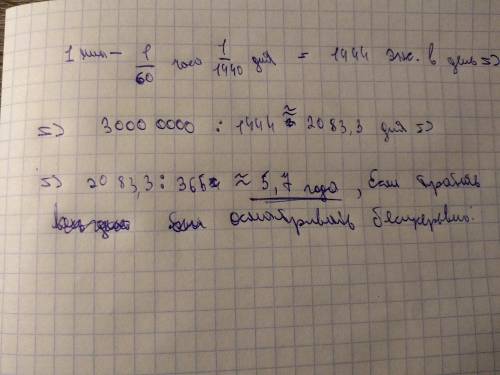 1 мин — 1/60 часа 1/1440 дня = 1444 экс. в день =>
=> 3000 0000 : 1444 ≈ 2083,3 дня =>
=> 2083,3 : 365 ≈ 5,7 года, если
осматривать беспрерывно.